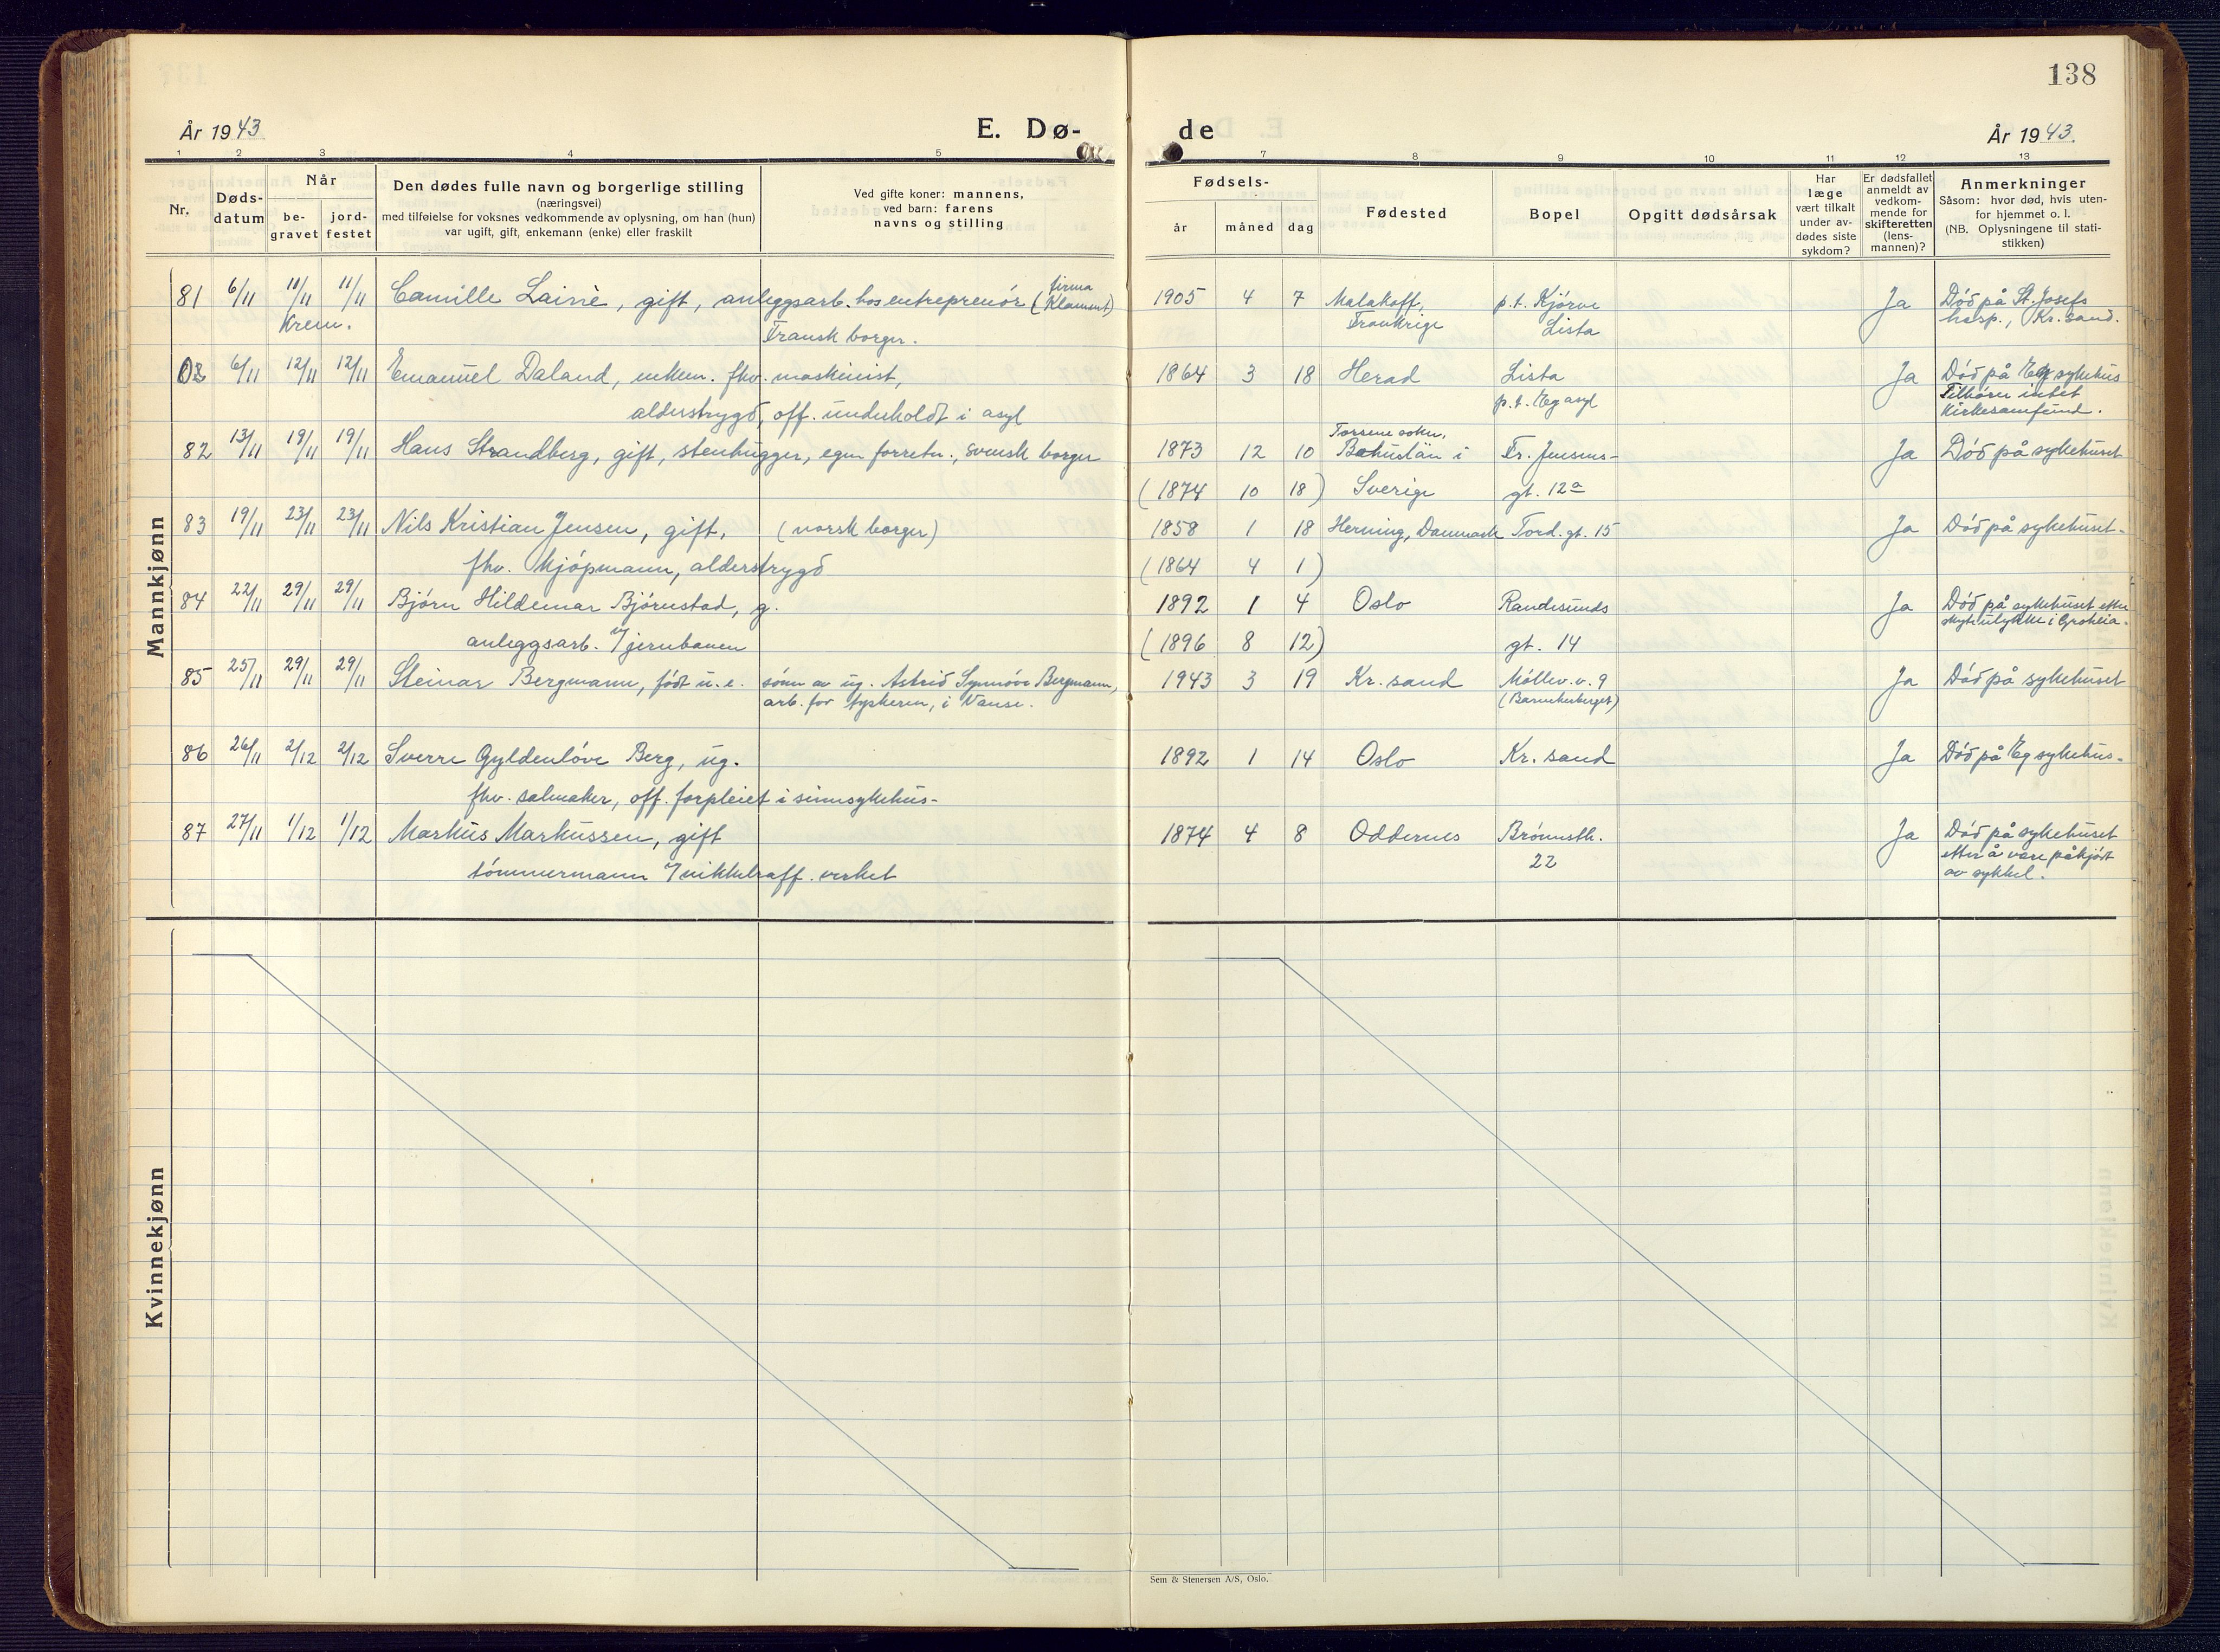 138
År 1943
E. Dø-
de
År 1943.
1 2 3 4 5 7 8 9 10 11 12 13
Nr.
Døds-
datum
Når
be-
gravet
jord-
festet
Den dødes fulle navn og borgerlige stilling
(næringsvei)
med tilføielse for voksnes vedkommende av oplysning, om han (hun)
var ugift, gift, enkemann (enke) eller fraskilt
Ved gifte koner: mannens,
ved barn: farens
navns og stilling
Fødsels-
år måned dag
Fødested
Bopel
Opgitt dødsårsak
Har
læge
vært tilkalt
under av-
dødes siste
sykdom?
Er dødsfallet
anmeldt av
vedkom-
mende for
skifteretten
(lens-
mannen)?
Anmerkninger
Såsom: hvor død, hvis uten-
for hjemmet o. l.
(NB. Oplysningene til stati-
stikken)
Mannkjønn
81 6/11 11/11 11/11 Camille Lainè, gift, anleggsarb. hos entreprenör (firma 1905 4 7 Malakoff, p.t. Kjørve Ja Död på St. Josefs
Krem. Fransk borger. Frankrige Lista hosp., Kr.sand.
6/11 12/11 12/11 Emanuel Daland, enkem. fhv. maskinist, 1864 3 18 Herad Lista Ja Död på Eg sykehus
alderstrygd, off. underholdt i asyl p.t. Eg asyl Tilhörer intet
Kirkesamfund.
82 13/11 19/11 19/11 Hans Strandberg, gift, stenhugger, egen forretn., svensk borger 1873 12 10 Bohuslän i Fr. Jensens- Ja Död på sykehuset
(1874 10 18) Sverige gt. 12a
83 19/11 23/11 23/11 Nils Kristian Jensen, gift, (norsk borger) 1858 1 18 Herning, Danmark Tord. gt. 15 Ja Död på sykehuset.
fhv. kjöpmann, alderstrygd (1864 4 1)
84 22/11 29/11 29/11 Bjørn Hildemar Bjørnstad, g. 1892 1 4 Oslo Randesunds Ja Död på sykehuset efter
anleggsarb. v/jernbanen (1896 8 12) gt. 14 skyteulykke i Groheia.
85 25/11 29/11 29/11 Steinar Bergmann, født u. e. sönn av ug. Astrid Synnöve Bergmann, 1943 3 19 Kr. sand Möllev. v. 9 Ja Död på sykehuset
arb. for tyskeren, i Vanse.
86 26/11 2/12 2/12 Sverre Gyldenlöve Berg, ug. 1892 1 14 Oslo Kr. sand Ja Död på Eg sykehus.
fhv. salmaker, off. forpleiet i sinnsykehus-
87 27/11 1/12 1/12 Markus Markussen, gift 1874 4 8 Oddernes Brönnsth. Ja Död på sykehuset
tömmermann v/nikkelraff. verket 22 etter å være påkjört
av sykkel.
Kvinnekjønn
Sem & Stenersen A/S, Oslo.